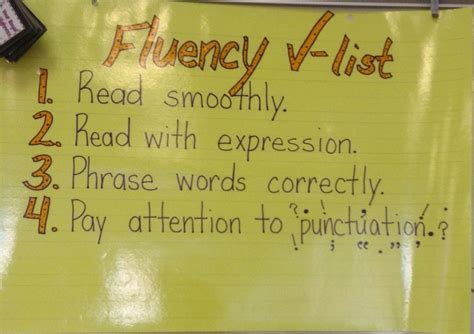 Fluency √-list
1. Read smoothly.
2. Read with expression.
3. Phrase words correctly.
4. Pay attention to punctuation.